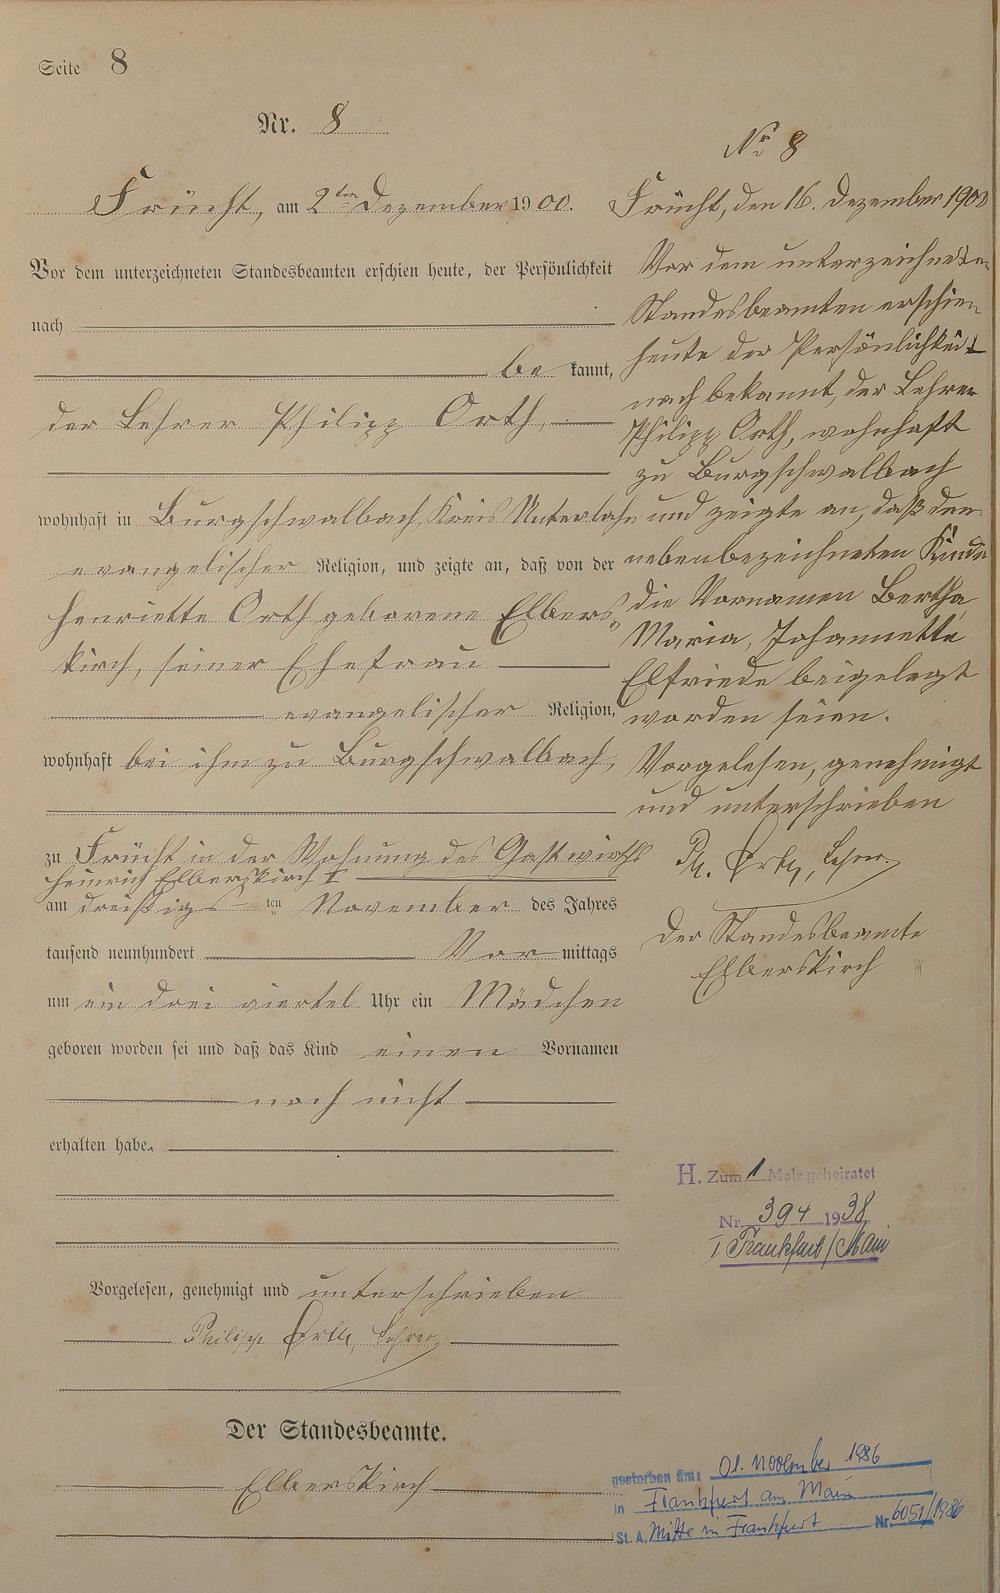 Seite 8
Nr. 8
Frücht, am 2ten Dezember 1900.
Vor dem unterzeichneten Standesbeamten erschien heute, der Persönlichkeit
nach
be kannt,
der Lehrer Philipp Orth,
wohnhaft in Burgschwalbach, Kreis Unterlahn
evangelischer Religion, und zeigte an, daß von der
Henriette Orth geborene Elbers„
kirch, seiner Ehefrau
evangelischer Religion,
wohnhaft bei ihm zu Burgschwalbach,
zu Frücht in der Wohnung des Gastwirths
Heinrich Elberskirch
am dreißigs ten November des Jahres
tausend neunhundert Vor mittags
um ein drei viertel Uhr ein Mädchen
geboren worden sei und daß das Kind einen Vornamen
noch nicht
erhalten habe.
Vorgelesen, genehmigt und unterschrieben
Philipp Orth, Lehrer
Der Standesbeamte.
Elberskirch
No 8
Frücht, den 16. Dezember 1900
Vor dem unterzeichneten
Standesbeamten erschien
heute der Persönlichkeit
nach bekannt, der Lehrer
Philipp Orth, wohnhaft
zu Burgschwalbach
und zeigte an, daß dem
nebenbezeichneten Kinde
die Vornamen Bertha
Maria, Johannette
Elfriede beigelegt
worden seien.
Vorgelesen, genehmigt
und unterschrieben
Ph. Orth, Lehrer
Der Standesbeamte
Elberskirch
H. Zum 1 Male geheiratet
Nr. 394 1938
I Frankfurt/Main
gestorben am: 01. November 1986
in Frankfurt am Main
St. A. Mitte in Frankfurt Nr. 6051/1986